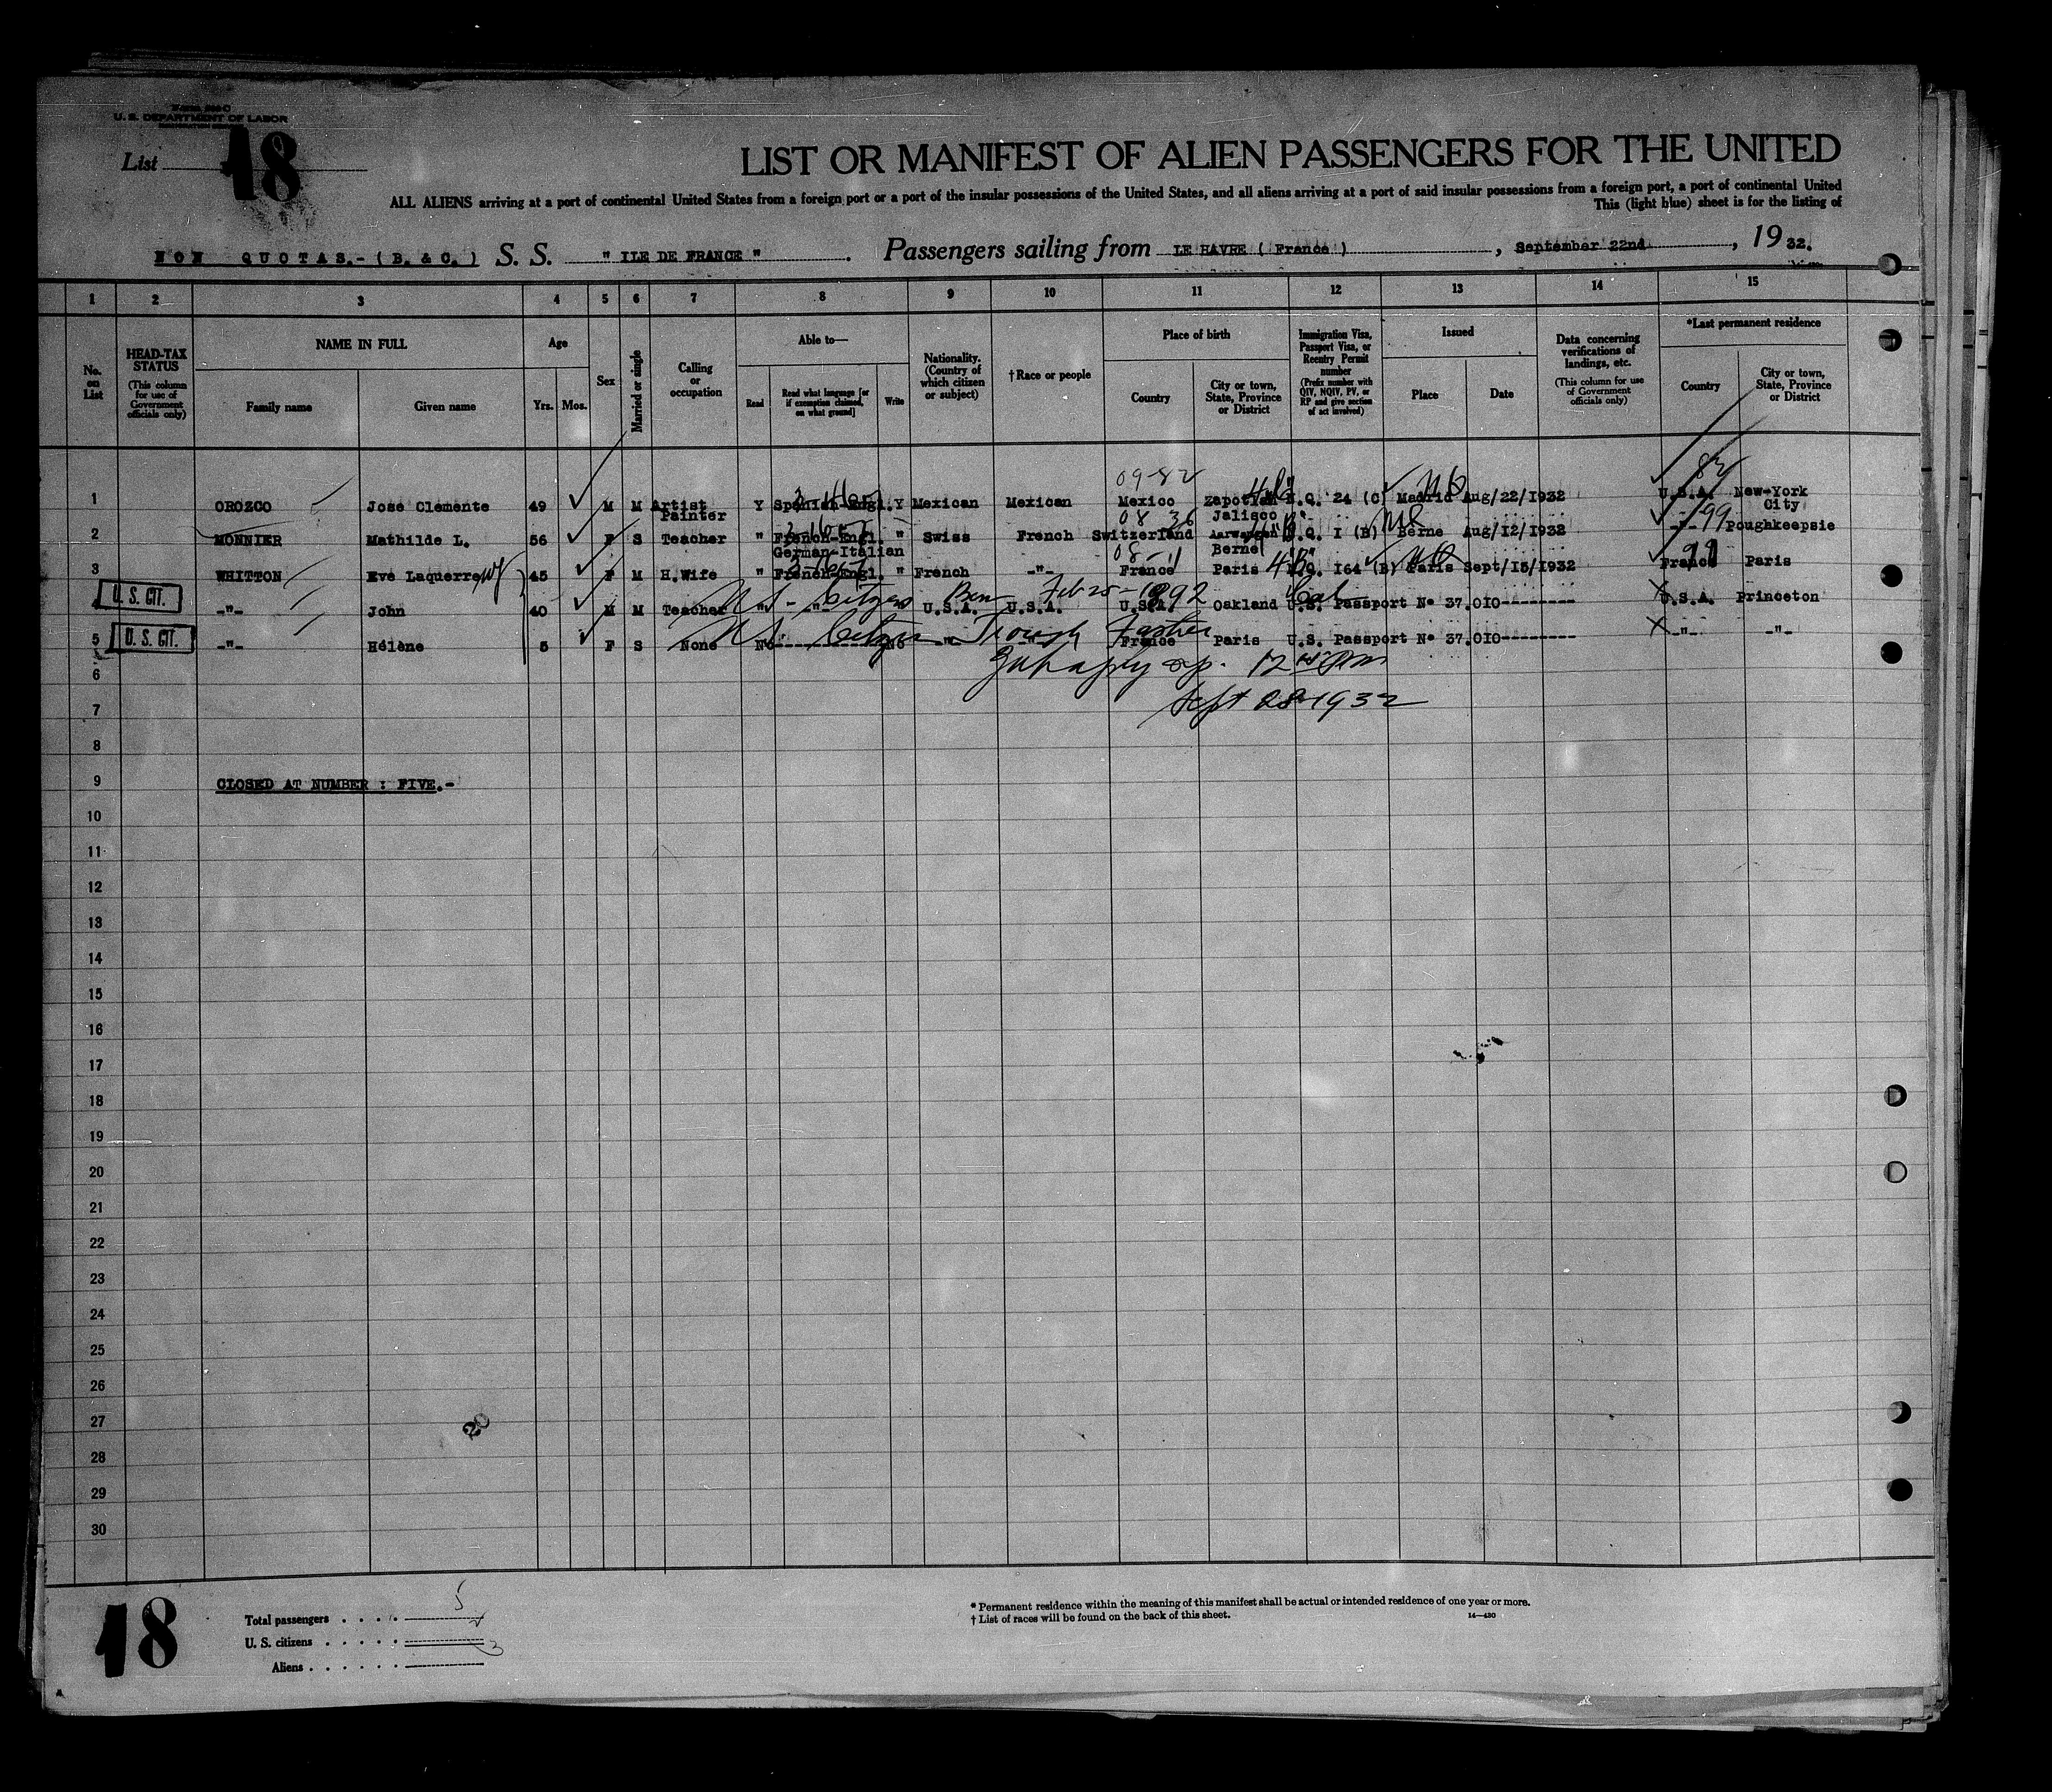 U. S. DEPARTMENT OF LABOR
List 18
LIST OR MANIFEST OF ALIEN PASSENGERS FOR THE UNITED
ALL ALIENS arriving at a port of continental United States from a foreign port or a port of the insular possessions of the United States, and all aliens arriving at a port of said insular possessions from a foreign port, a port of continental United
This (light blue) sheet is for the listing of
NON QUOTAS.-(B. & C.) S. S. " ILE DE FRANCE " . Passengers sailing from LE HAVRE ( France ) , September 22nd , 19 32.
1 2 3 4 5 6 7 8 9 10 11 12 13 14 15
No. on List
HEAD-TAX STATUS (This column for use of Government officials only)
NAME IN FULL
Family name Given name
Age
Yrs. Mos.
Sex
Married or single
Calling or occupation
Able to—
Read Read what language [or if exemption claimed, on what ground] Write
Nationality. (Country of which citizen or subject)
†Race or people
Place of birth
Country City or town, State, Province or District
Immigration Visa, Passport Visa, or Reentry Permit number (Prefix number with QIV, NQIV, PV, or RP and give section of act involved)
Issued
Place Date
Data concerning verifications of landings, etc. (This column for use of Government officials only)
*Last permanent residence
Country City or town, State, Province or District
09-82 82
1 OROZCO José Clemente 49 M M Artist Painter Y Spanish-Engl. Y Mexican Mexican Mexico Jalisco N.Q. 24 (C) Madrid Aug/22/1932 U.S.A. New-York City
08 36 99
2 MONNIER Mathilde L. 56 F S Teacher " French-Engl. German-Italian " Swiss French Switzerland Aarwangen Berne N.Q. I (B) Berne Aug/12/1932 -"- Poughkeepsie
08-11
3 WHITTON Eve Laquerre wf 45 F M H.Wife " French-Engl. " French -"- France Paris N.Q. 164 (B) Paris Sept/15/1932 France Paris
US-Citizen Born Feb 25-1892 Cal
U. S. CIT. 4 -"- John 40 M M Teacher " " " U.S.A. U.S.A. U.S.A. Oakland U.S. Passport No 37.010-------- U.S.A. Princeton
US-Citizen Trough Father
U. S. CIT. 5 -"- Hélène 5 F S None No------------No -"- -"- France Paris U.S. Passport No 37.010-------- -"- -"-
6
Sept 28-1932
7
8
9 CLOSED AT NUMBER : FIVE.-
10
11
12
13
14
15
16
17
18
19
20
21
22
23
24
25
26
27
20
28
29
30
18
Total passengers . . . . 5
U. S. citizens . . . . . 2
Aliens . . . . . . 3
* Permanent residence within the meaning of this manifest shall be actual or intended residence of one year or more.
† List of races will be found on the back of this sheet. 14—430